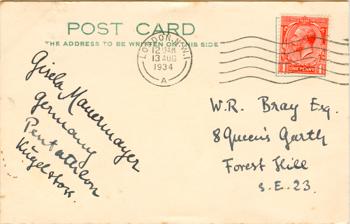 POST CARD
THE ADDRESS TO BE WRITTEN ON THIS SIDE
LONDON. N.W.1
12 15 AM
13 AUG
1934
A
ONE PENNY
Gisela Mauermayer
Germany
Pentathlon
Kugelstoss.
W.R. Bray Esq.
8 Queens Garth
Forest Hill
S.E. 23.